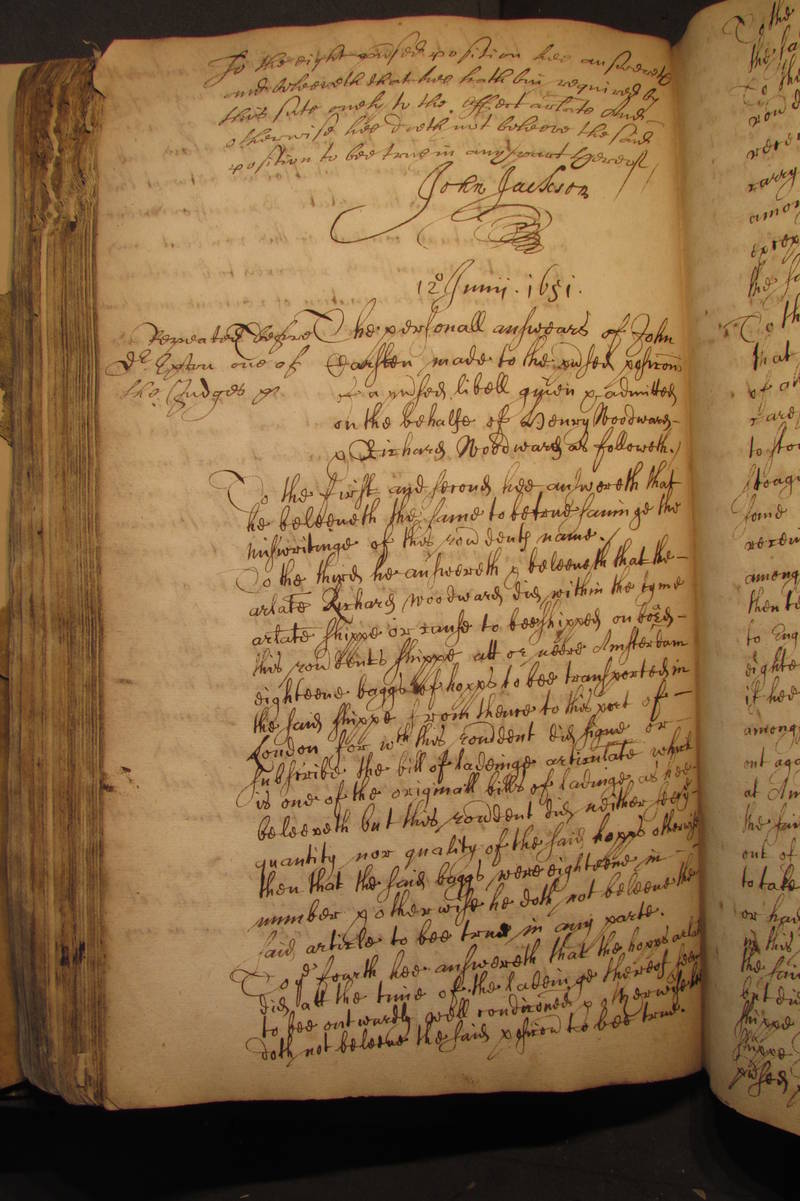 To the eight pnsed position hee answereth
and beleeveth that hee hath bin required by
this suite onely to the effect arlate And
otherwise hee doth not beleeve the said
position to bee true in any part thereof
John Jackson
12º Junij. 1651.
Repeated before
Dr Exton one of
the Judges
The personall answears of John
Carsten made to the pnsed posicons
of a pnsed libell given & admitted
on the behalfe of Henry Woodward
& Richard Woodward as followeth.
To the First and second hee answereth that
he beleeveth the same to be true saving the
miswritinge of this rondents name.
To the third he answereth & beleeveth that the
arlate Richard Woodward did within the tyme
arlate shippe or cause to bee shipped on bord
this rondents shippe att or neere Amsterdam
eighteene baggs of hopps to bee transported in
the said shippe from thence to this port of
London for wch this rondent did signe or
subscribe the bill of ladeinge articulate which
is one of the originall bills of ladinge, as hee
beleeveth but this rondent did neither
quantity nor quality of the said hopps otherwise
then that the said baggs were eighteene in
number & otherwise he doth not beleeve the
said article to bee true in any parte.
To ye fourth hee answereth that the hopps arlate
did att the time of the ladeinge thereof seeme
to bee outwardly well condiconed & otherwise
doth not beleeve the said posicon to bee true.
To the
the sa
To the
ron
carry
among
the sa
To th
that
of
to sto
some
among
then to
to Eng
eighte
if hee
among
out aga
at Am
the sai
out of
to take
or had
this
the said
but did
shippe
shippe
pnsed